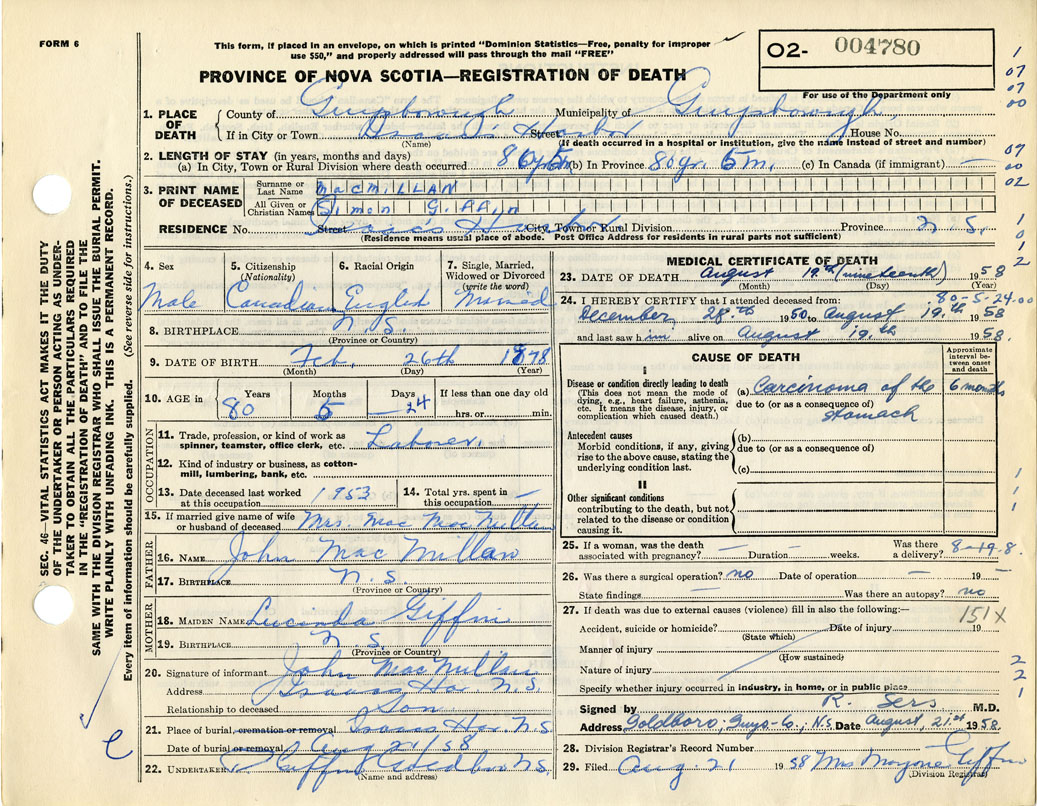 FORM 6
This form, if placed in an envelope, on which is printed "Dominion Statistics—Free, penalty for improper
use $50," and properly addressed will pass through the mail "FREE"
O2- 004780
For use of the Department only
PROVINCE OF NOVA SCOTIA—REGISTRATION OF DEATH
1. PLACE OF DEATH
County of Guysborough Municipality of Guysborough,
If in City or Town Isaac's Harbor Street House No.
(Name) (If death occurred in a hospital or institution, give the name instead of street and number)
2. LENGTH OF STAY (in years, months and days)
(a) In City, Town or Rural Division where death occurred 80yr 5m (b) In Province 80yr. 5m. (c) In Canada (if immigrant) —
3. PRINT NAME OF DECEASED
Surname or Last Name MacMILLAN
All Given or Christian Names Simon G.
RESIDENCE No. Street Isaac's Harbor City, Town or Rural Division Province N.S.
(Residence means usual place of abode. Post Office Address for residents in rural parts not sufficient)
4. Sex Male
5. Citizenship (Nationality) Canadian
6. Racial Origin English
7. Single, Married, Widowed or Divorced (write the word) Married
8. BIRTHPLACE N.S.
(Province or Country)
9. DATE OF BIRTH Feb. 26th 1878
(Month) (Day) (Year)
10. AGE in Years 80 Months 5 Days 24 If less than one day old hrs. or min.
OCCUPATION
11. Trade, profession, or kind of work as spinner, teamster, office clerk, etc. Laborer,
12. Kind of industry or business, as cotton-mill, lumbering, bank, etc.
13. Date deceased last worked at this occupation 1953
14. Total yrs. spent in this occupation —
15. If married give name of wife or husband of deceased Mrs. Mac MacMillan
FATHER
16. NAME John MacMillan
17. BIRTHPLACE N.S.
(Province or Country)
MOTHER
18. MAIDEN NAME Lucinda Giffin
19. BIRTHPLACE N.S.
(Province or Country)
20. Signature of informant John MacMillan
Address Isaacs Har N.S.
Relationship to deceased Son
21. Place of burial, cremation or removal Isaacs Har N.S.
Date of burial or removal Aug 21/58
22. UNDERTAKER Giffin Goldboro N.S.
(Name and address)
MEDICAL CERTIFICATE OF DEATH
23. DATE OF DEATH August 19th (nineteenth) 1958
(Month) (Day) (Year)
80-5-24.00
24. I HEREBY CERTIFY that I attended deceased from:
December, 28th 1950 to August 19.th 1958
and last saw him alive on August 19.th 1958.
CAUSE OF DEATH
Approximate interval between onset and death
Disease or condition directly leading to death
(This does not mean the mode of dying, e.g., heart failure, asthenia, etc. It means the disease, injury, or complication which caused death.)
(a) Carcinoma of the 6 months
due to (or as a consequence of) stomach
Antecedent causes
Morbid conditions, if any, giving rise to the above cause, stating the underlying condition last.
(b)
due to (or as a consequence of)
(c)
II
Other significant conditions
contributing to the death, but not related to the disease or condition causing it.
25. If a woman, was the death associated with pregnancy? — Duration — weeks. Was there a delivery?
8-19-8.
26. Was there a surgical operation? no Date of operation — 19 —
State findings — Was there an autopsy? no
27. If death was due to external causes (violence) fill in also the following:—
151X
Accident, suicide or homicide? Date of injury 19
(State which)
Manner of injury
(How sustained)
Nature of injury
Specify whether injury occurred in industry, in home, or in public place
Signed by R. Sers M.D.
Address Goldboro; Guys-Co., N.S. Date August, 21.st 1958.
28. Division Registrar's Record Number
29. Filed Aug. 21 1958 Mrs Giffin
(Division Registrar)
SEC. 46—VITAL STATISTICS ACT MAKES IT THE DUTY
OF THE UNDERTAKER OR PERSON ACTING AS UNDER-
TAKER TO OBTAIN ALL THE PARTICULARS REQUIRED
IN THE "REGISTRATION OF DEATH" AND TO FILE THE
SAME WITH THE DIVISION REGISTRAR WHO SHALL ISSUE THE BURIAL PERMIT.
WRITE PLAINLY WITH UNFADING INK. THIS IS A PERMANENT RECORD.
Every item of information should be carefully supplied. (See reverse side for instructions.)
1
07
07
00
07
00
02
1
0
1
2
1
1
1
2
2
1